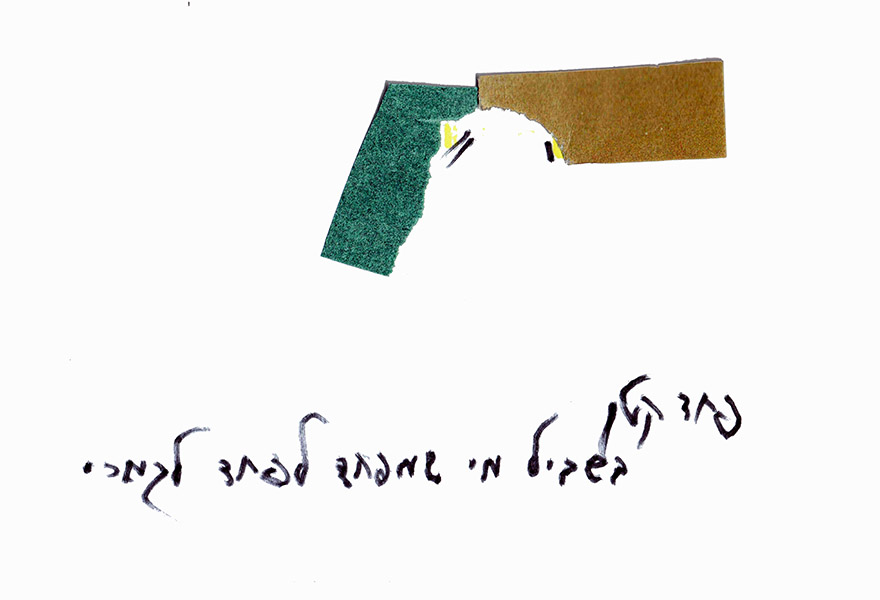 פחד קטן
בשביל מי שמפחד לפחד לגמרי